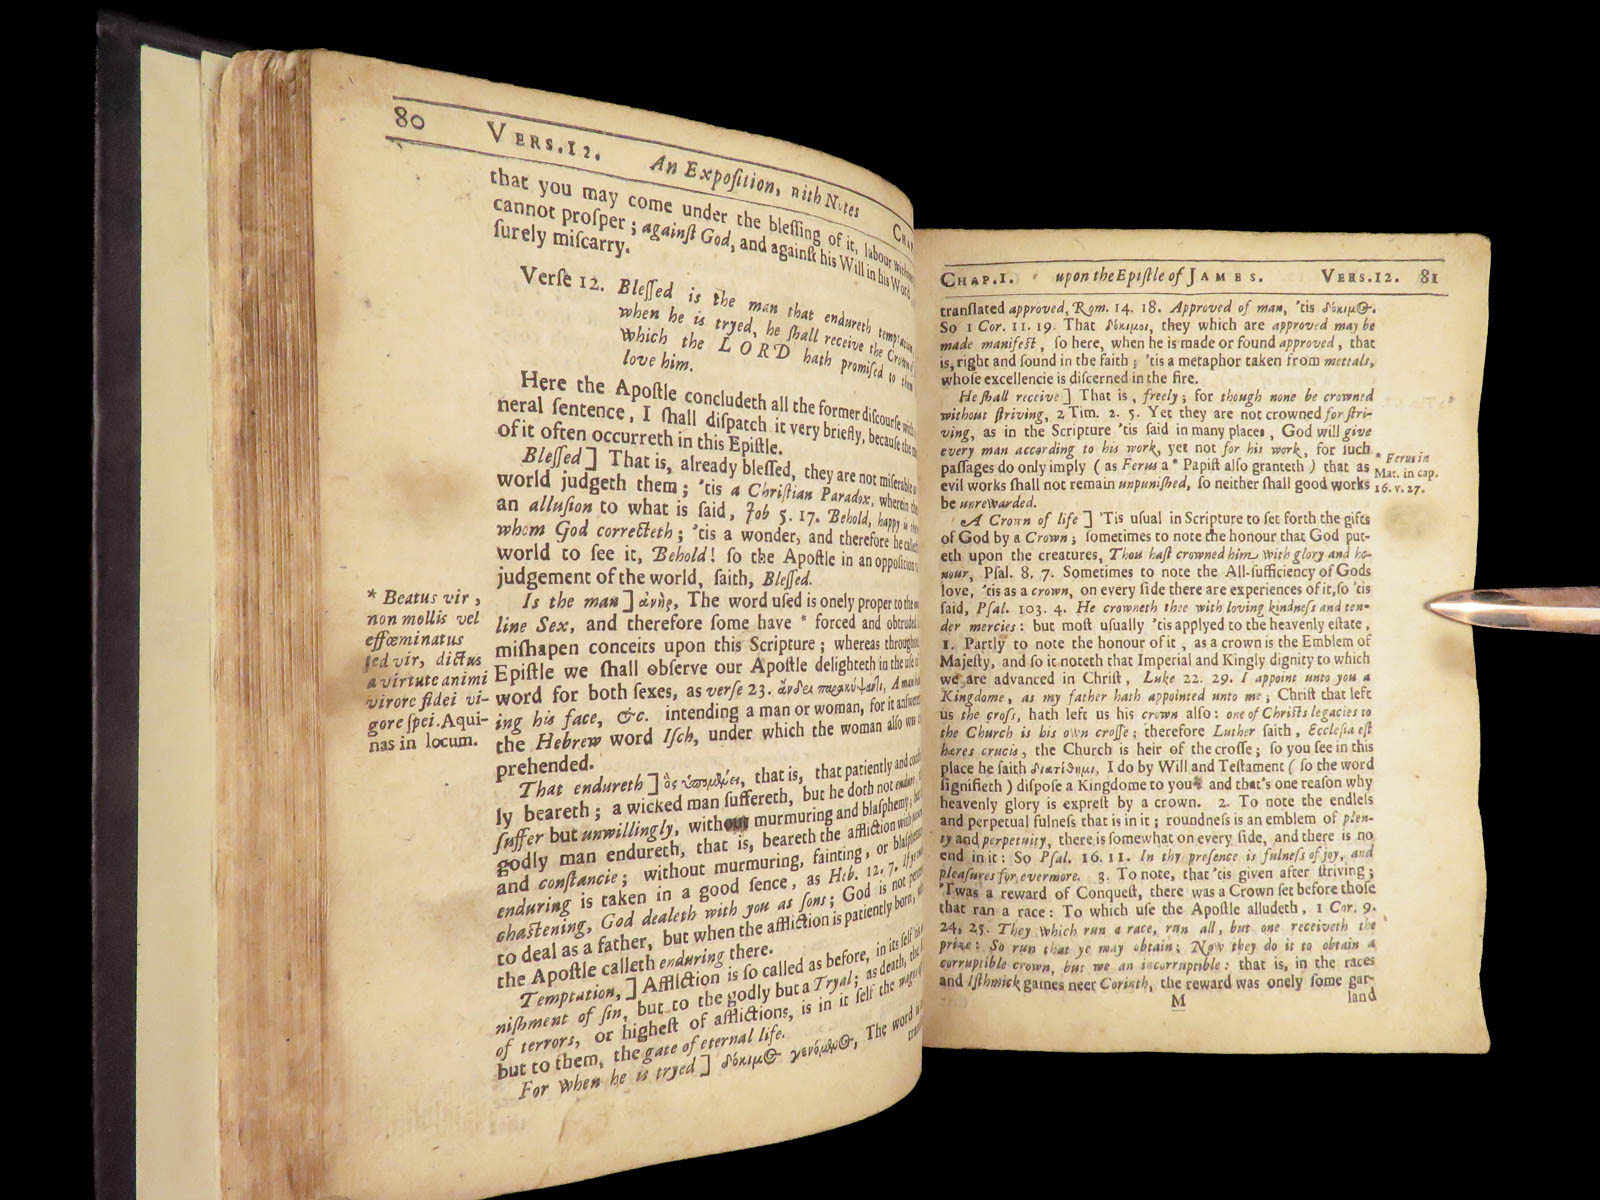 80 VERS.12. An Expoſition, with Notes CHAP
that you may come under the bleſſing of it, labour without
cannot proſper; againſt God, and againſt his Will in his Word,
ſurely miſcarry.
Verſe 12. Bleſſed is the man that endureth temptation,
when he is tryed, he ſhall receive the Crown of
which the LORD hath promiſed to them
love him.
Here the Apoſtle concludeth all the former diſcourſe with
neral ſentence, I ſhall diſpatch it very briefly, becauſe the
of it often occurreth in this Epiſtle.
Bleſſed] That is, already bleſſed, they are not miſerable
world judgeth them; 'tis a Chriſtian Paradox, wherein
an alluſion to what is ſaid, Job 5. 17. Behold, happy is the
whom God correcteth; 'tis a wonder, and therefore he calleth
world to ſee it, Behold! ſo the Apoſtle in an oppoſition
judgement of the world, ſaith, Bleſſed.
Is the man] ἀνὴρ, The word uſed is onely proper to the
line Sex, and therefore ſome have * forced and obtruded
miſhapen conceits upon this Scripture; whereas throughout
Epiſtle we ſhall obſerve our Apoſtle delighteth in the uſe of
word for both ſexes, as verſe 23. A man
ing his face, &c. intending a man or woman, for it anſwereth
the Hebrew word Iſch, under which the woman alſo was
prehended.
* Beatus vir,
non mollis vel
effœminatus
ſed vir, dictus
a virtute animi
virore fidei vi-
gore ſpei. Aqui-
nas in locum.
That endureth] ὃς ὑπομένει, that is, that patiently and
ly beareth; a wicked man ſuffereth, but he doth not endure,
ſuffer but unwillingly, without murmuring and blaſphemy;
godly man endureth, that is, beareth the affliction with
and conſtancie; without murmuring, fainting, or blaſphemy
enduring is taken in a good ſence, as Heb. 12. 7. If ye
chaſtening, God dealeth with you as ſons; God is not
to deal as a father, but when the affliction is patiently born,
the Apoſtle calleth enduring there.
Temptation,] Affliction is ſo called as before, in its ſelf 'tis
niſhment of ſin, but to the godly but a Tryal; as death, the
of terrors, or higheſt of afflictions, is in it ſelf the wages
but to them, the gate of eternal life.
For when he is tryed] δόκιμος γενόμενος, The word is
CHAP.I. upon the Epiſtle of JAMES. VERS.12. 81
tranſlated approved, Rom. 14. 18. Approved of man, 'tis δόκιμος.
So 1 Cor. 11. 19. That δόκιμοι, they which are approved may be
made manifeſt, ſo here, when he is made or found approved, that
is, right and ſound in the faith; 'tis a metaphor taken from mettals,
whoſe excellencie is diſcerned in the fire.
He ſhall receive] That is, freely; for though none be crowned
without ſtriving, 2 Tim. 2. 5. Yet they are not crowned for ſtri-
ving, as in the Scripture 'tis ſaid in many places, God will give
every man according to his work, yet not for his work, for ſuch
paſſages do only imply (as Ferus a * Papiſt alſo granteth) that as
evil works ſhall not remain unpuniſhed, ſo neither ſhall good works
be unrewarded.
* Ferus in
Mat. in cap.
16. v. 27.
A Crown of life] 'Tis uſual in Scripture to ſet forth the gifts
of God by a Crown; ſometimes to note the honour that God put-
eth upon the creatures, Thou haſt crowned him with glory and ho-
nour, Pſal. 8. 7. Sometimes to note the All-ſufficiency of Gods
love, 'tis as a crown, on every ſide there are experiences of it, ſo 'tis
ſaid, Pſal. 103. 4. He crowneth thee with loving kindneſs and ten-
der mercies: but moſt uſually 'tis applyed to the heavenly eſtate,
1. Partly to note the honour of it, as a crown is the Emblem of
Majeſty, and ſo it noteth that Imperial and Kingly dignity to which
we are advanced in Chriſt, Luke 22. 29. I appoint unto you a
Kingdome, as my father hath appointed unto me; Chriſt that left
us the croſs, hath left us his crown alſo: one of Chriſts legacies to
the Church is his own croſſe; therefore Luther ſaith, Eccleſia eſt
hæres crucis, the Church is heir of the croſſe; ſo you ſee in this
place he ſaith διατίθημι, I do by Will and Teſtament (ſo the word
ſignifieth) diſpoſe a Kingdome to you: and that's one reaſon why
heavenly glory is expreſt by a crown. 2. To note the endleſs
and perpetual fulneſs that is in it; roundneſs is an emblem of plen-
ty and perpetuity, there is ſomewhat on every ſide, and there is no
end in it: So Pſal. 16. 11. In thy preſence is fulneſs of joy, and
pleaſures for evermore. 3. To note, that 'tis given after ſtriving;
'Twas a reward of Conqueſt, there was a Crown ſet before thoſe
that ran a race: To which uſe the Apoſtle alludeth, 1 Cor. 9.
24, 25. They which run a race, run all, but one receiveth the
prize: So run that ye may obtain; Now they do it to obtain a
corruptible crown, but we an incorruptible: that is, in the races
and Iſthmick games neer Corinth, the reward was onely ſome gar-
M land